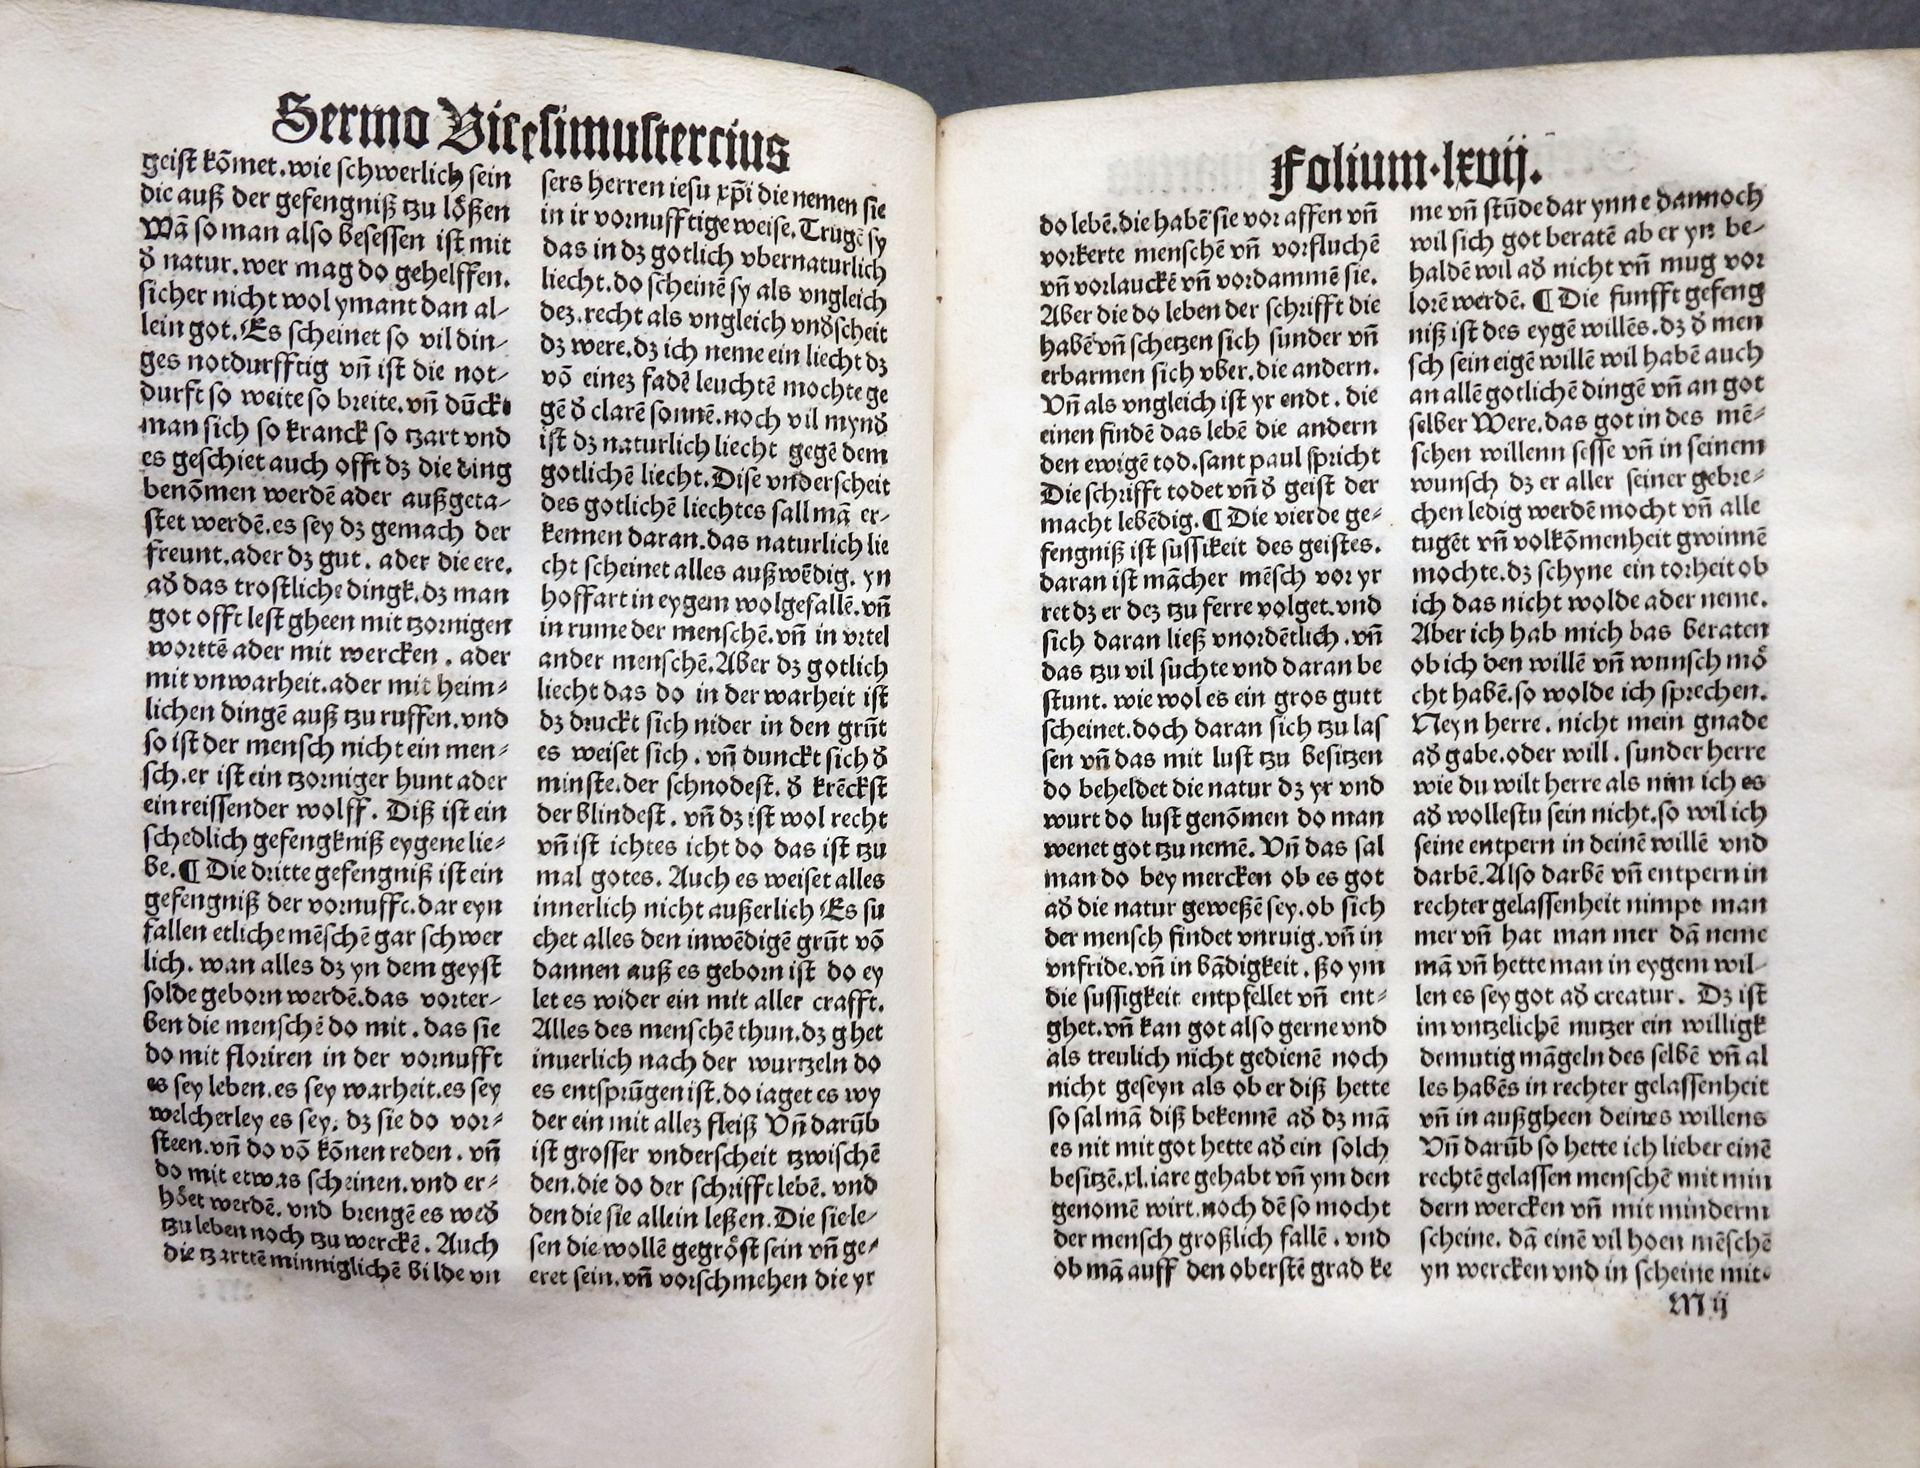 Sermo Vicesimustercius
geist kōmet.wie schwerlich sein
die auß der gefengniß tzu lößen
Wā so man also besessen ist mit
đ natur.wer mag do gehelffen.
sicher nicht wol ymant dan al-
lein got.Es scheinet so vil din-
ges notdurfftig vñ ist die not-
durft so weite so breite.vñ dūckt
man sich so kranck so tzart vnd
es geschiet auch offt dz die ding
benōmen werdē ader außgeta-
stet werdē.es sey dz gemach der
freunt.ader dz gut. ader die ere.
ađ das trostliche dingk.dz man
got offt lest gheen mit tzornigen
worttē ader mit wercken. ader
mit vnwarheit.ader mit heim-
lichen dingē auß tzu ruffen.vnd
so ist der mensch nicht ein men-
sch.er ist ein tzorniger hunt ader
ein reissender wolff. Diß ist ein
schedlich gefengkniß eygene lie-
be.¶ Die dritte gefengniß ist ein
gefengniß der vornufft.dar eyn
fallen etliche mēschē gar schwer
lich. wan alles dz yn dem geyst
solde geborn werdē.das vorter-
ben die menschē do mit. das sie
do mit floriren in der vornufft
es sey leben.es sey warheit.es sey
welcherley es sey, dz sie do vor-
steen.vñ do vō kōnen reden. vñ
do mit etwas scheinen.vnd er-
höet werdē. vnd brengē es weđ
tzu leben noch tzu werckē. Auch
die tzarttē minniglichē bilde vn
sers herren iesu xp̄i die nemen sie
in ir vornufftige weise.Trugē sy
das in dz gotlich vbernaturlich
liecht.do scheinē sy als vngleich
dez.recht als vngleich vnđscheit
dz were.dz ich neme ein liecht dz
vō einez fadē leuchtē mochte ge
gē đ clarē sonnē.noch vil mynđ
ist dz naturlich liecht gegē dem
gotlichē liecht.Dise vnderscheit
des gotlichē liechtes sall mā er-
kennen daran.das naturlich lie
cht scheinet alles außwēdig. yn
hoffart in eygem wolgefallē.vñ
in rume der menschē.vñ in vrtel
ander menschē.Aber dz gotlich
liecht das do in der warheit ist
dz druckt sich nider in den grūt
es weiset sich. vñ dunckt sich đ
minste.der schnodest. đ krēckst
der blindest. vñ dz ist wol recht
vñ ist ichtes icht do das ist tzu
mal gotes. Auch es weiset alles
innerlich nicht außerlich Es su
chet alles den inwēdigē grūt vō
dannen auß es geborn ist do ey
let es wider ein mit aller crafft.
Alles des menschē thun.dz ghet
inuerlich nach der wurtzeln do
es entsprūgen ist.do iaget es wy
der ein mit allez fleiß Vñ darūb
ist grosser vnderscheit tzwischē
den.die do der schrifft lebē. vnd
den die sie allein leßen.Die sie le-
sen die wollē gegröst sein vñ ge-
eret sein.vñ vorschmehen die yr
Folium.lxvij.
do lebē.die habē sie vor affen vñ
vorkerte menschē vñ vorfluchē
vñ vorlauckē vñ vordammē sie.
Aber die do leben der schrifft die
habē vñ schetzen sich sunder vñ
erbarmen sich vber.die andern.
Vñ als vngleich ist yr endt. die
einen findē das lebē die andern
den ewigē tod.sant paul spricht
Die schrifft todet vñ đ geist der
macht lebēdig.¶ Die vierde ge-
fengniß ist sussikeit des geistes.
daran ist mācher mēsch vor yr
ret dz er dez tzu ferre volget.vnd
sich daran ließ vnordētlich.vñ
das tzu vil suchte vnd daran be
stunt. wie wol es ein gros gutt
scheinet.doch daran sich tzu las
sen vñ das mit lust tzu besitzen
do beheldet die natur dz yr vnd
wurt do lust genōmen do man
wenet got tzu nemē. Vñ das sal
man do bey mercken ob es got
ađ die natur geweßē sey.ob sich
der mensch findet vnruig.vñ in
vnfride.vñ in bādigkeit. ßo ym
die sussigkeit entpfellet vñ ent-
ghet.vñ kan got also gerne vnd
als treulich nicht gedienē noch
nicht geseyn als ob er diß hette
so sal mā diß bekennē ađ dz mā
es nit mit got hette ađ ein solch
besitzē.xl.iare gehabt vñ ym den
genomē wirt.noch dē so mocht
der mensch großlich fallē. vnd
ob mā auff den oberstē grad ke
me vñ stūde dar ynne dannoch
wil sich got beratē ab er yn be-
haldē wil ađ nicht vñ mug vor
lorē werdē. ¶ Die funfft gefeng
niß ist des eygē willēs.dz đ men
sch sein eigē willē wil habē auch
an allē gotlichē dingē vñ an got
selber Were.das got in des mē-
schen willenn sesse vñ in seinem
wunsch dz er aller seiner gebre-
chen ledig werdē mocht vñ alle
tugēt vñ volkōmenheit gwinnē
mochte.dz schyne ein torheit ob
ich das nicht wolde ader neme.
Aber ich hab mich bas beraten
ob ich den willē vñ wunsch mö
cht habē.so wolde ich sprechen.
Neyn herre. nicht mein gnade
ađ gabe.oder will. sunder herre
wie du wilt herre als nim ich es
ađ wollestu sein nicht.so wil ich
seine entpern in deinē willē vnd
darbē.Also darbē vñ entpern in
rechter gelassenheit nimpt man
mer vñ hat man mer dā neme
mā vñ hette man in eygem wil-
len es sey got ađ creatur. Dz ist
im vntzelichē nutzer ein willigk
demutig māgeln des selbē vñ al
les habēs in rechter gelassenheit
vñ in außgheen deines willens
Vñ darūb so hette ich lieber einē
rechtē gelassen menschē mit min
dern wercken vñ mit minderm
scheine. dā einē vil hoen mēschē
yn wercken vnd in scheine mit-
M ij